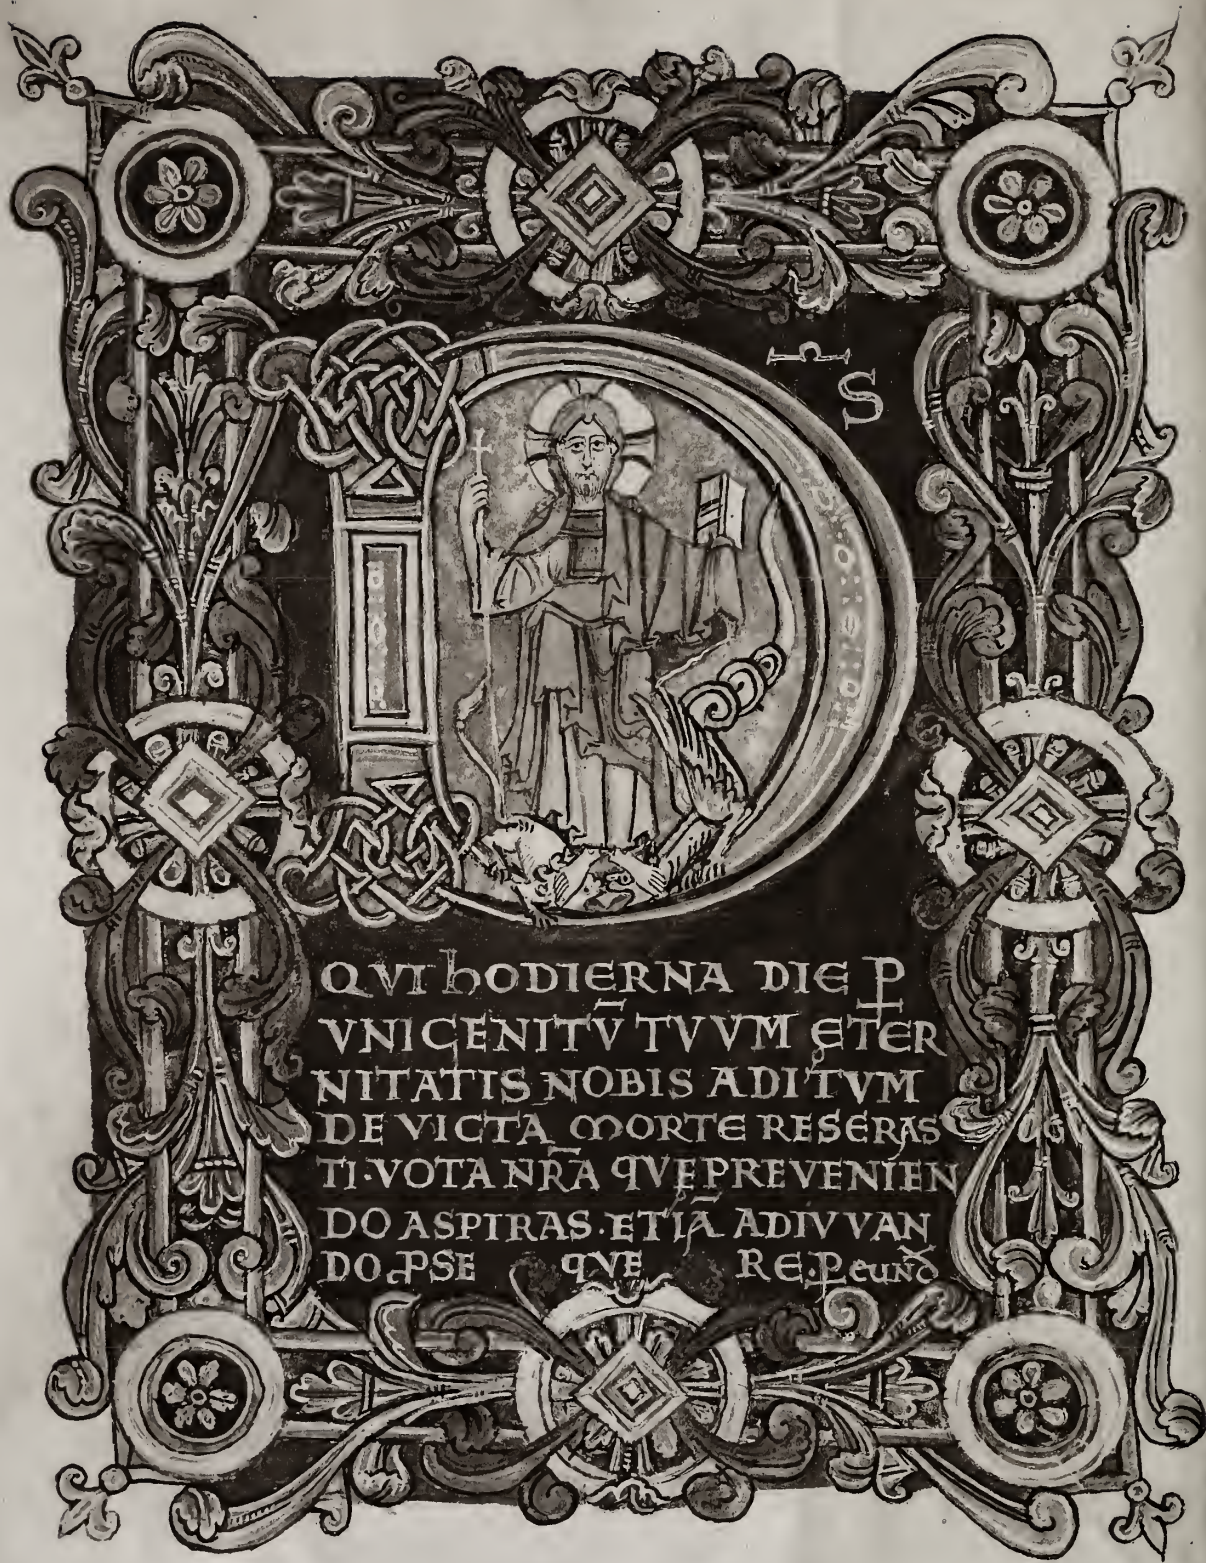 D̄S
QVI hODIERNA DIE P̲
VNIGENITV̄ TVVM ETER
NITATIS NOBIS ADITVM
DEVICTA MORTE RESERAS
TI·VOTA NR̄A QVE PREVENIEN
DO ASPIRAS·ETIĀ ADIVVAN
DO PSEQVERE·P̲ eund̄